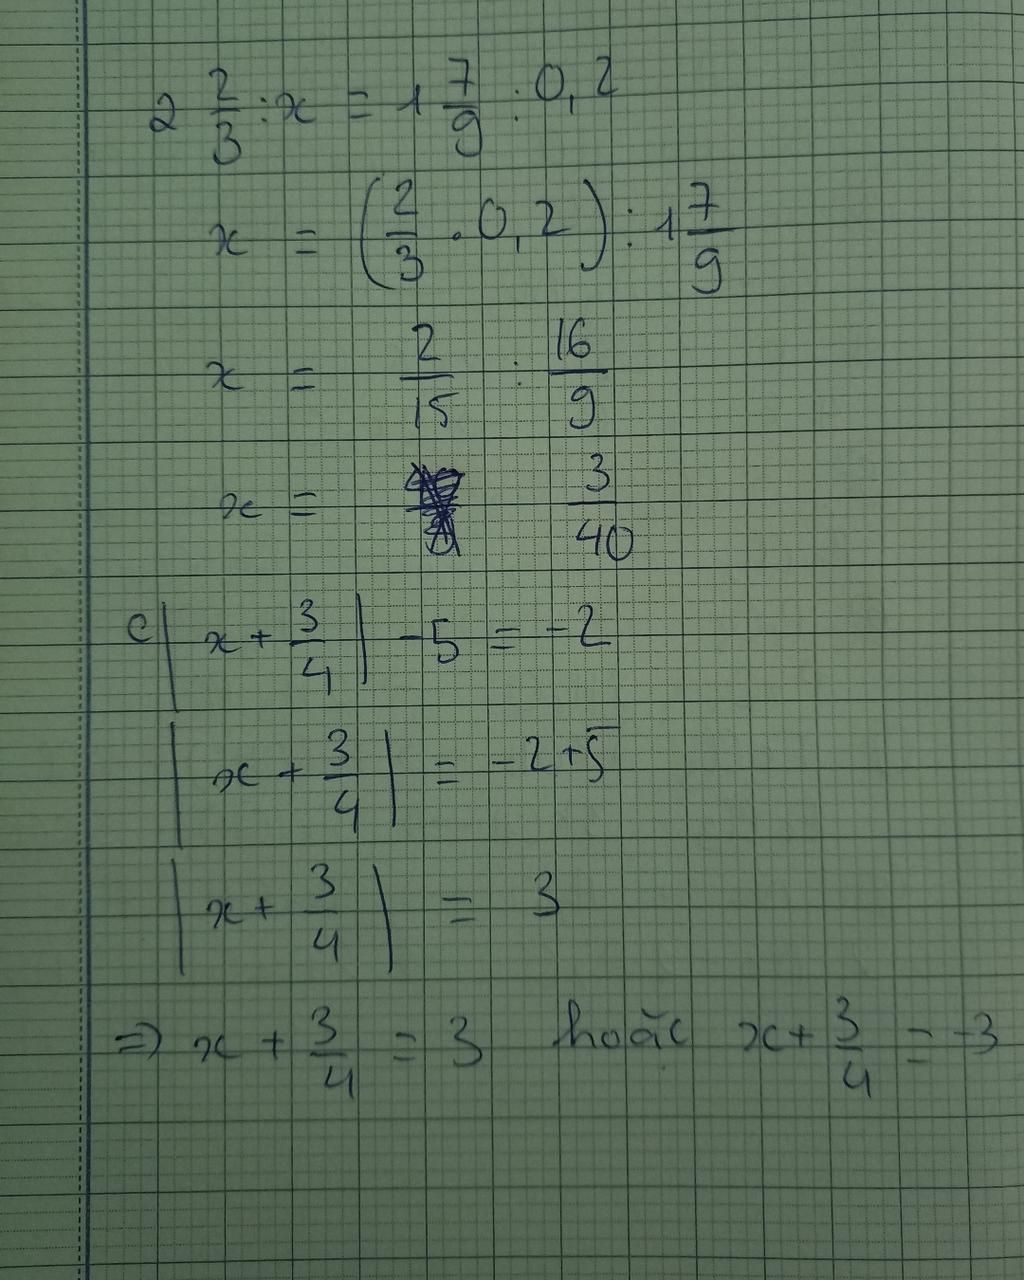 2 2/3 : x = 1 7/9 : 0,2
x = (2/3 . 0,2) : 1 7/9
x = 2/15 : 16/9
x = 3/40
c | x + 3/4 | - 5 = - 2
| x + 3/4 | = - 2 + 5
| x + 3/4 | = 3
=> x + 3/4 = 3 hoặc x + 3/4 = -3